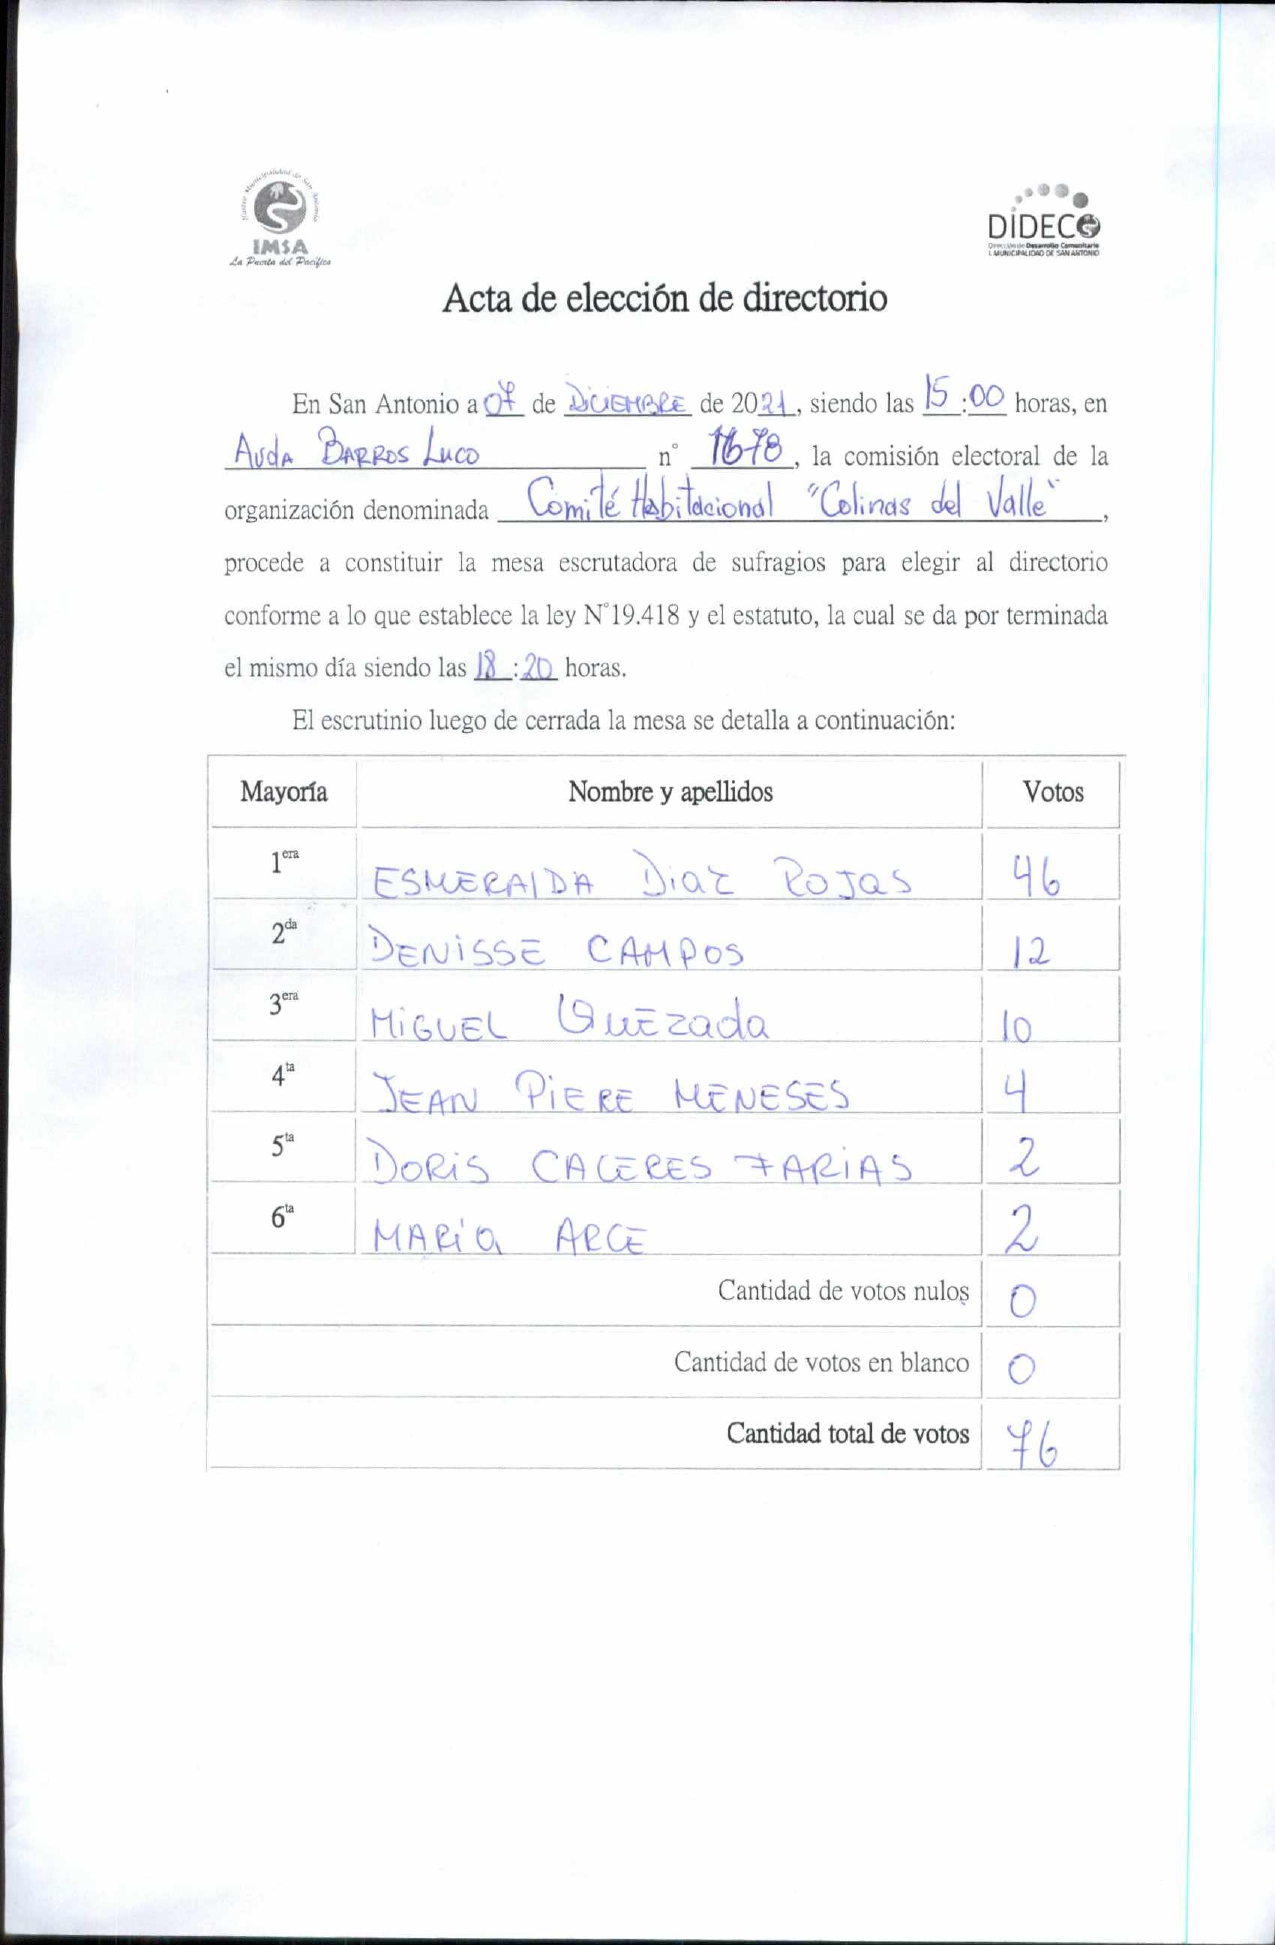 Ilustre Municipalidad de San Antonio
IMSA
La Puerta del Pacífico
DIDECO
Dirección de Desarrollo Comunitario
I. MUNICIPALIDAD DE SAN ANTONIO
Acta de elección de directorio
En San Antonio a 07 de DiCiEMBRE de 2021, siendo las 15:00 horas, en
Avda BARROS Luco n° 1678, la comisión electoral de la
organización denominada Comité Habitacional "Colinas del Valle",
procede a constituir la mesa escrutadora de sufragios para elegir al directorio
conforme a lo que establece la ley N°19.418 y el estatuto, la cual se da por terminada
el mismo día siendo las 18:20 horas.
El escrutinio luego de cerrada la mesa se detalla a continuación:
Mayoría Nombre y apellidos Votos
1era ESMERAlDA Diaz ROJAS 46
2da DENiSSE CAMPOS 12
3era MiGUEL QuEzada 10
4ta JEAN PiERE MENESES 4
5ta DORiS CACERES FARiAS 2
6ta MARia ARCE 2
Cantidad de votos nulos 0
Cantidad de votos en blanco 0
Cantidad total de votos 76